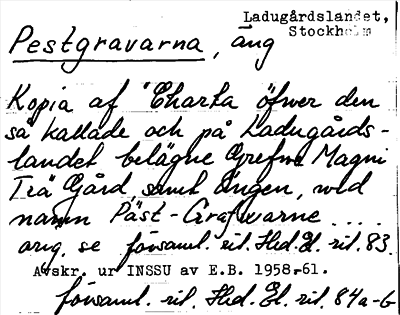 Ladugårdslandet,
Stockholm
Pestgravarna, äng
Kopia af "Charta öfwer den
så kallade och på Ladugårds-
landet belägne Grefwe Magni
Trä Gård, samt Ängen, wid
namn Päst-Grafwarne ....
orig. se församl. ril. Hed. El. ril. 83.
Avskr. ur INSSU av E.B. 1958-61.
församl. ril. Hed. El. ril. 84a-b